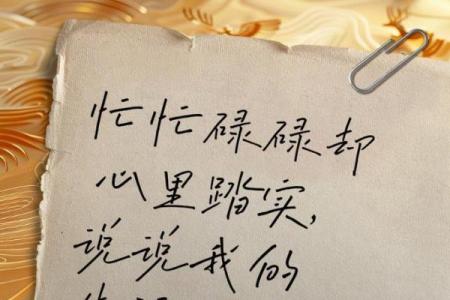 忙忙碌碌却
心里踏实，
说说我的